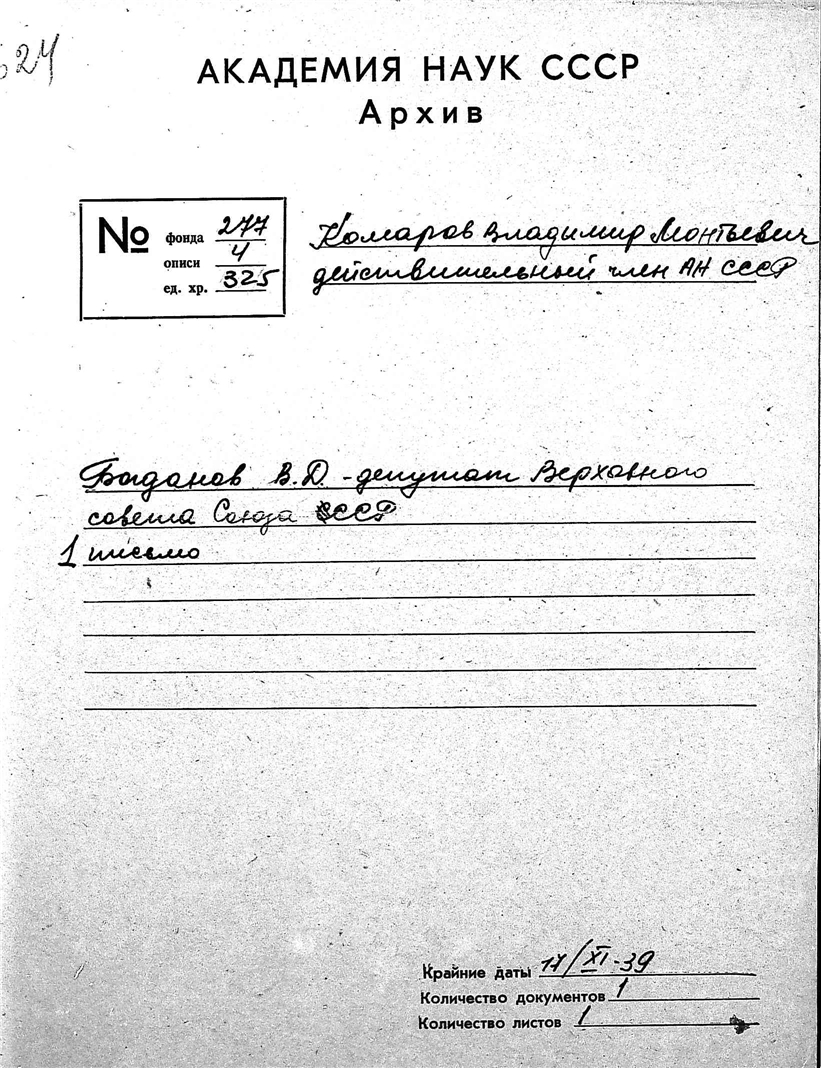 624
АКАДЕМИЯ НАУК СССР
Архив
№ фонда 277
описи 4
ед. хр. 325
Комаров Владимир Леонтьевич
действительный член АН СССР
Богданов В.Д. - депутат Верховного
совета Союза СССР
1 письмо
Крайние даты 17/XI-39
Количество документов 1
Количество листов 1